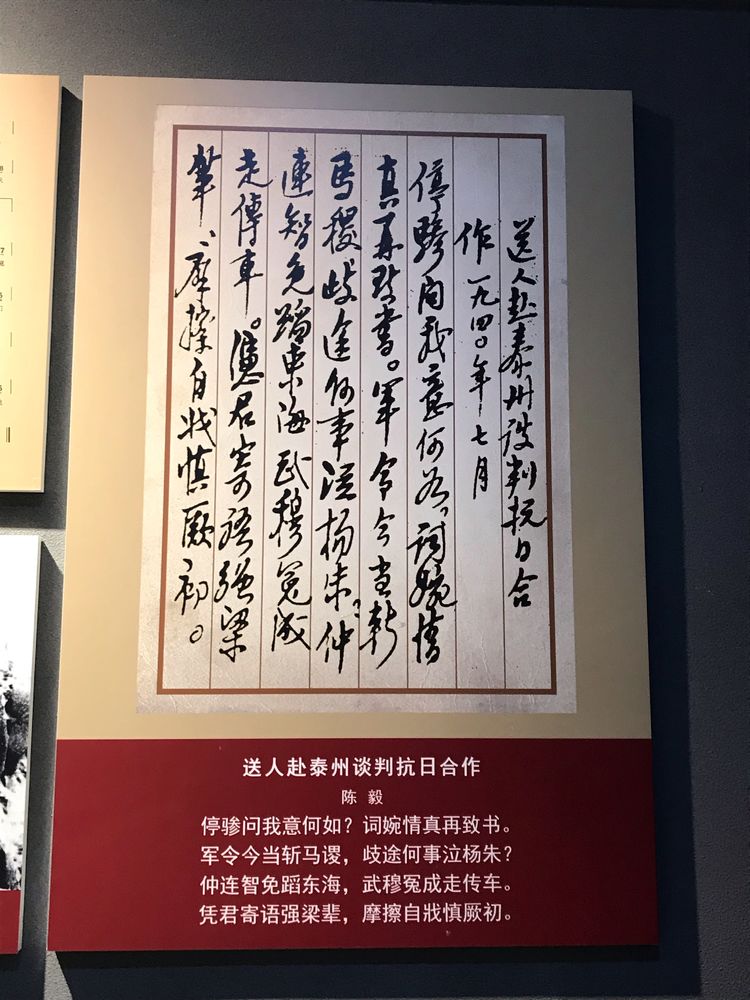 送人赴泰州谈判抗日合
作 一九四〇年七月
停骖问我意何如，词婉情
真再致书。军令今当斩
马稷歧途何事泣杨朱？仲
連智免蹈東海武穆冤成
走傳車。凭君寄语强梁
辈、摩擦自戕慎厥初。
送人赴泰州谈判抗日合作
陈 毅
停骖问我意何如？词婉情真再致书。
军令今当斩马谡，歧途何事泣杨朱？
仲连智免蹈东海，武穆冤成走传车。
凭君寄语强梁辈，摩擦自戕慎厥初。